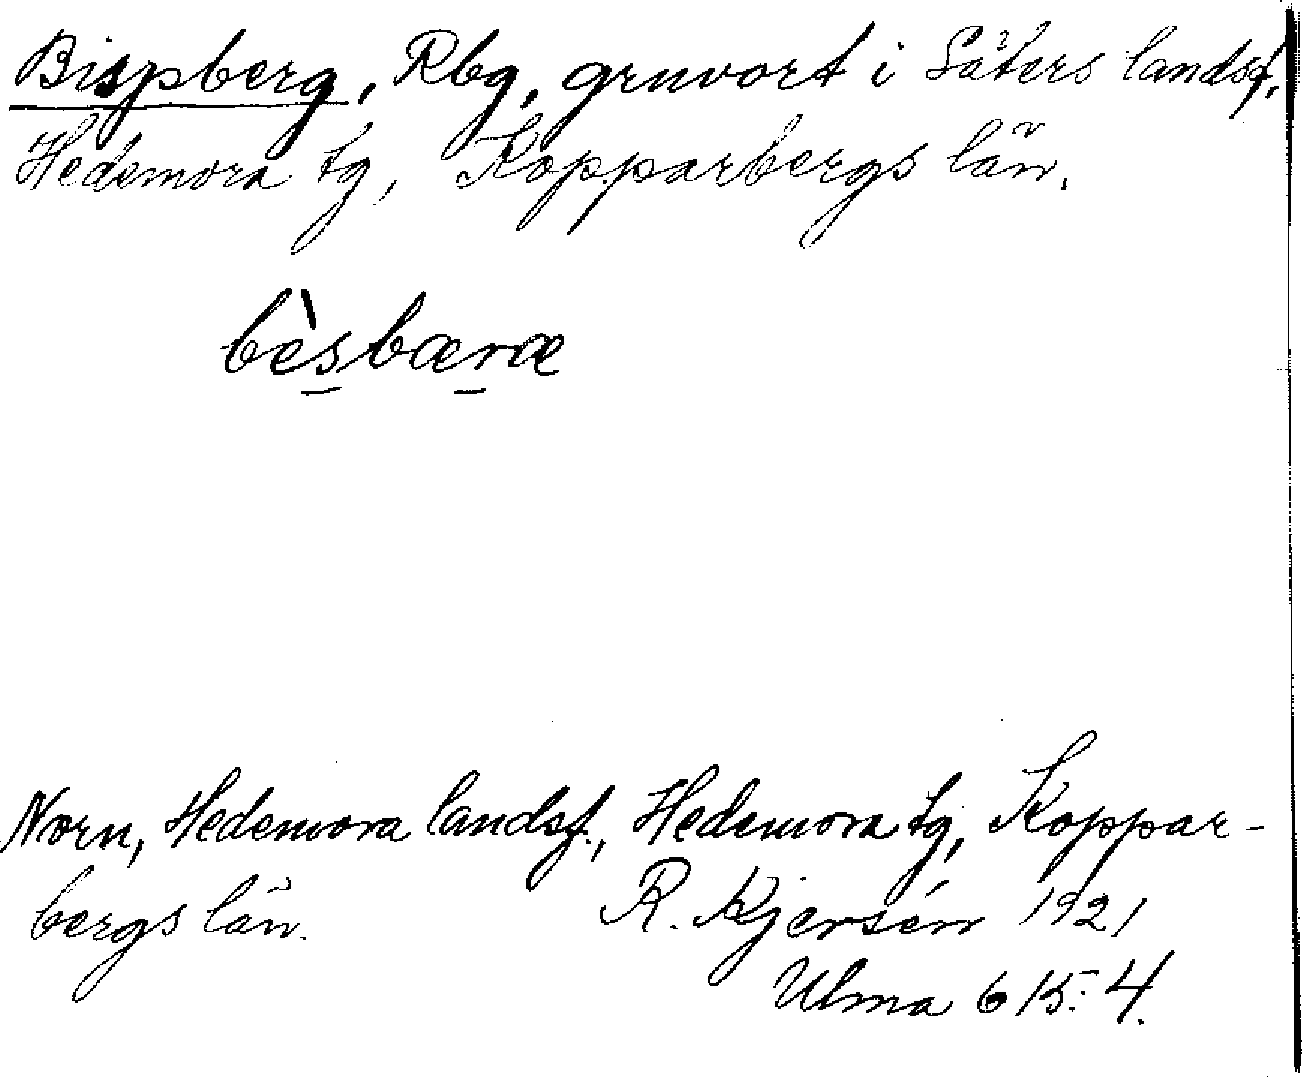 Bispberg, Rbg, gruvort i Säters landsf,
Hedemora tg, Kopparbergs län.
bèsbæræ
Norn, Hedemora landsf., Hedemora tg, Koppar-
bergs län. R. Kjersén 1921
Ulma 615:4.